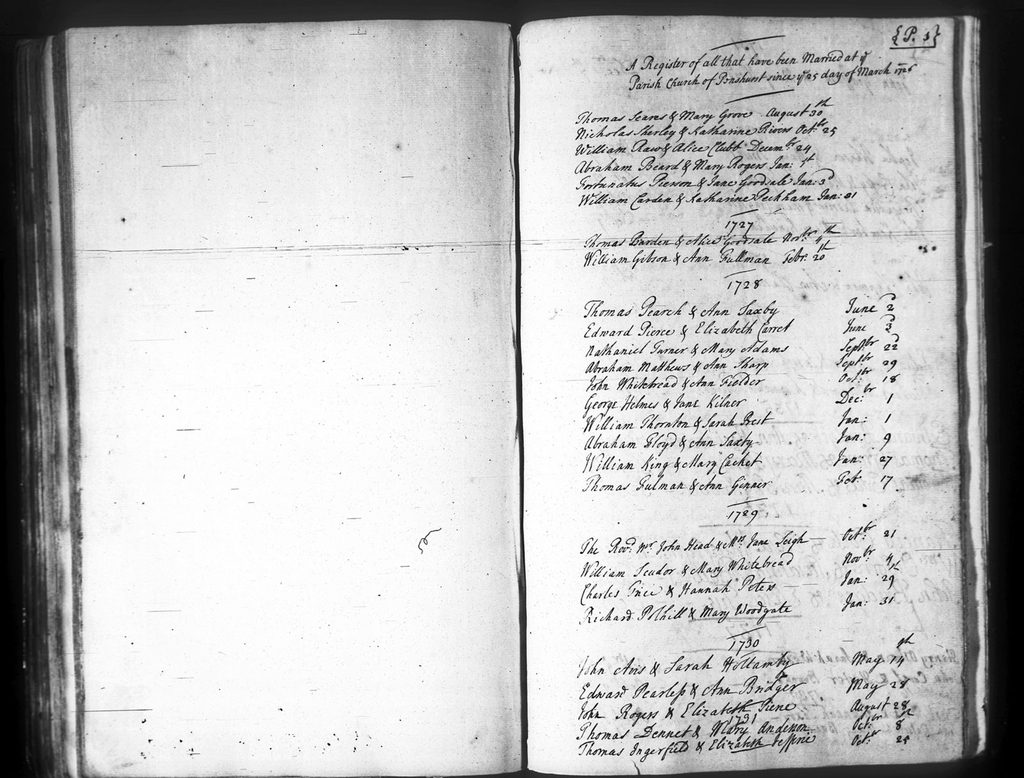 {P. 1}
A Register of all that have been Married at ye
Parish Church of Penshurst since ye 25 day of March 1726
Thomas Seares & Mary Grove August 30th
Nicholas Sherley & Katharine Rivers Octbr 25
William Raw & Alice Clubb Decembr 24
Abraham Beard & Mary Rogers Jan: 1st
Fortunatus Pierson & Jane Goodsale Jan: 3d
William Carden & Katharine Peckham Jan: 21
1727
Thomas Burden & Alice Goodsale Novbr 4th
William Gibson & Ann Fullman Febr. 20th
1728
Thomas Pearch & Ann Saxby June 2d
Edward Pierce & Elizabeth Carret June 3d
Nathaniel Turner & Mary Adams Septbr 22d
Abraham Matthews & Ann Sharp Septbr 29
John Whitebread & Ann Fielder Octbr 18
George Helmes & Jane Kilner Decbr 1
William Thornton & Sarah Best Jan: 1
Abraham Floyd & Ann Saxby Jan: 9
William King & Mary Cachet Jan: 27
Thomas Fulman & Ann Ginner Feb: 17
1729
The Revd. Mr John Head & Mrs Jane Leigh Octbr 21
William Seudor & Mary Whitebread Novbr 4
Charles Price & Hannah Peters Jan: 29
Richard Polhill & Mary Woodgate Jan: 31
1730
John Avis & Sarah Hollamby May 14th
Edward Pearless & Ann Bridger May 28
John Rogers & Elizabeth August 28
1731
Thomas Dennet & Mary Anderson Octbr 8
Thomas Ingerfield & Elizabeth Octbr 25